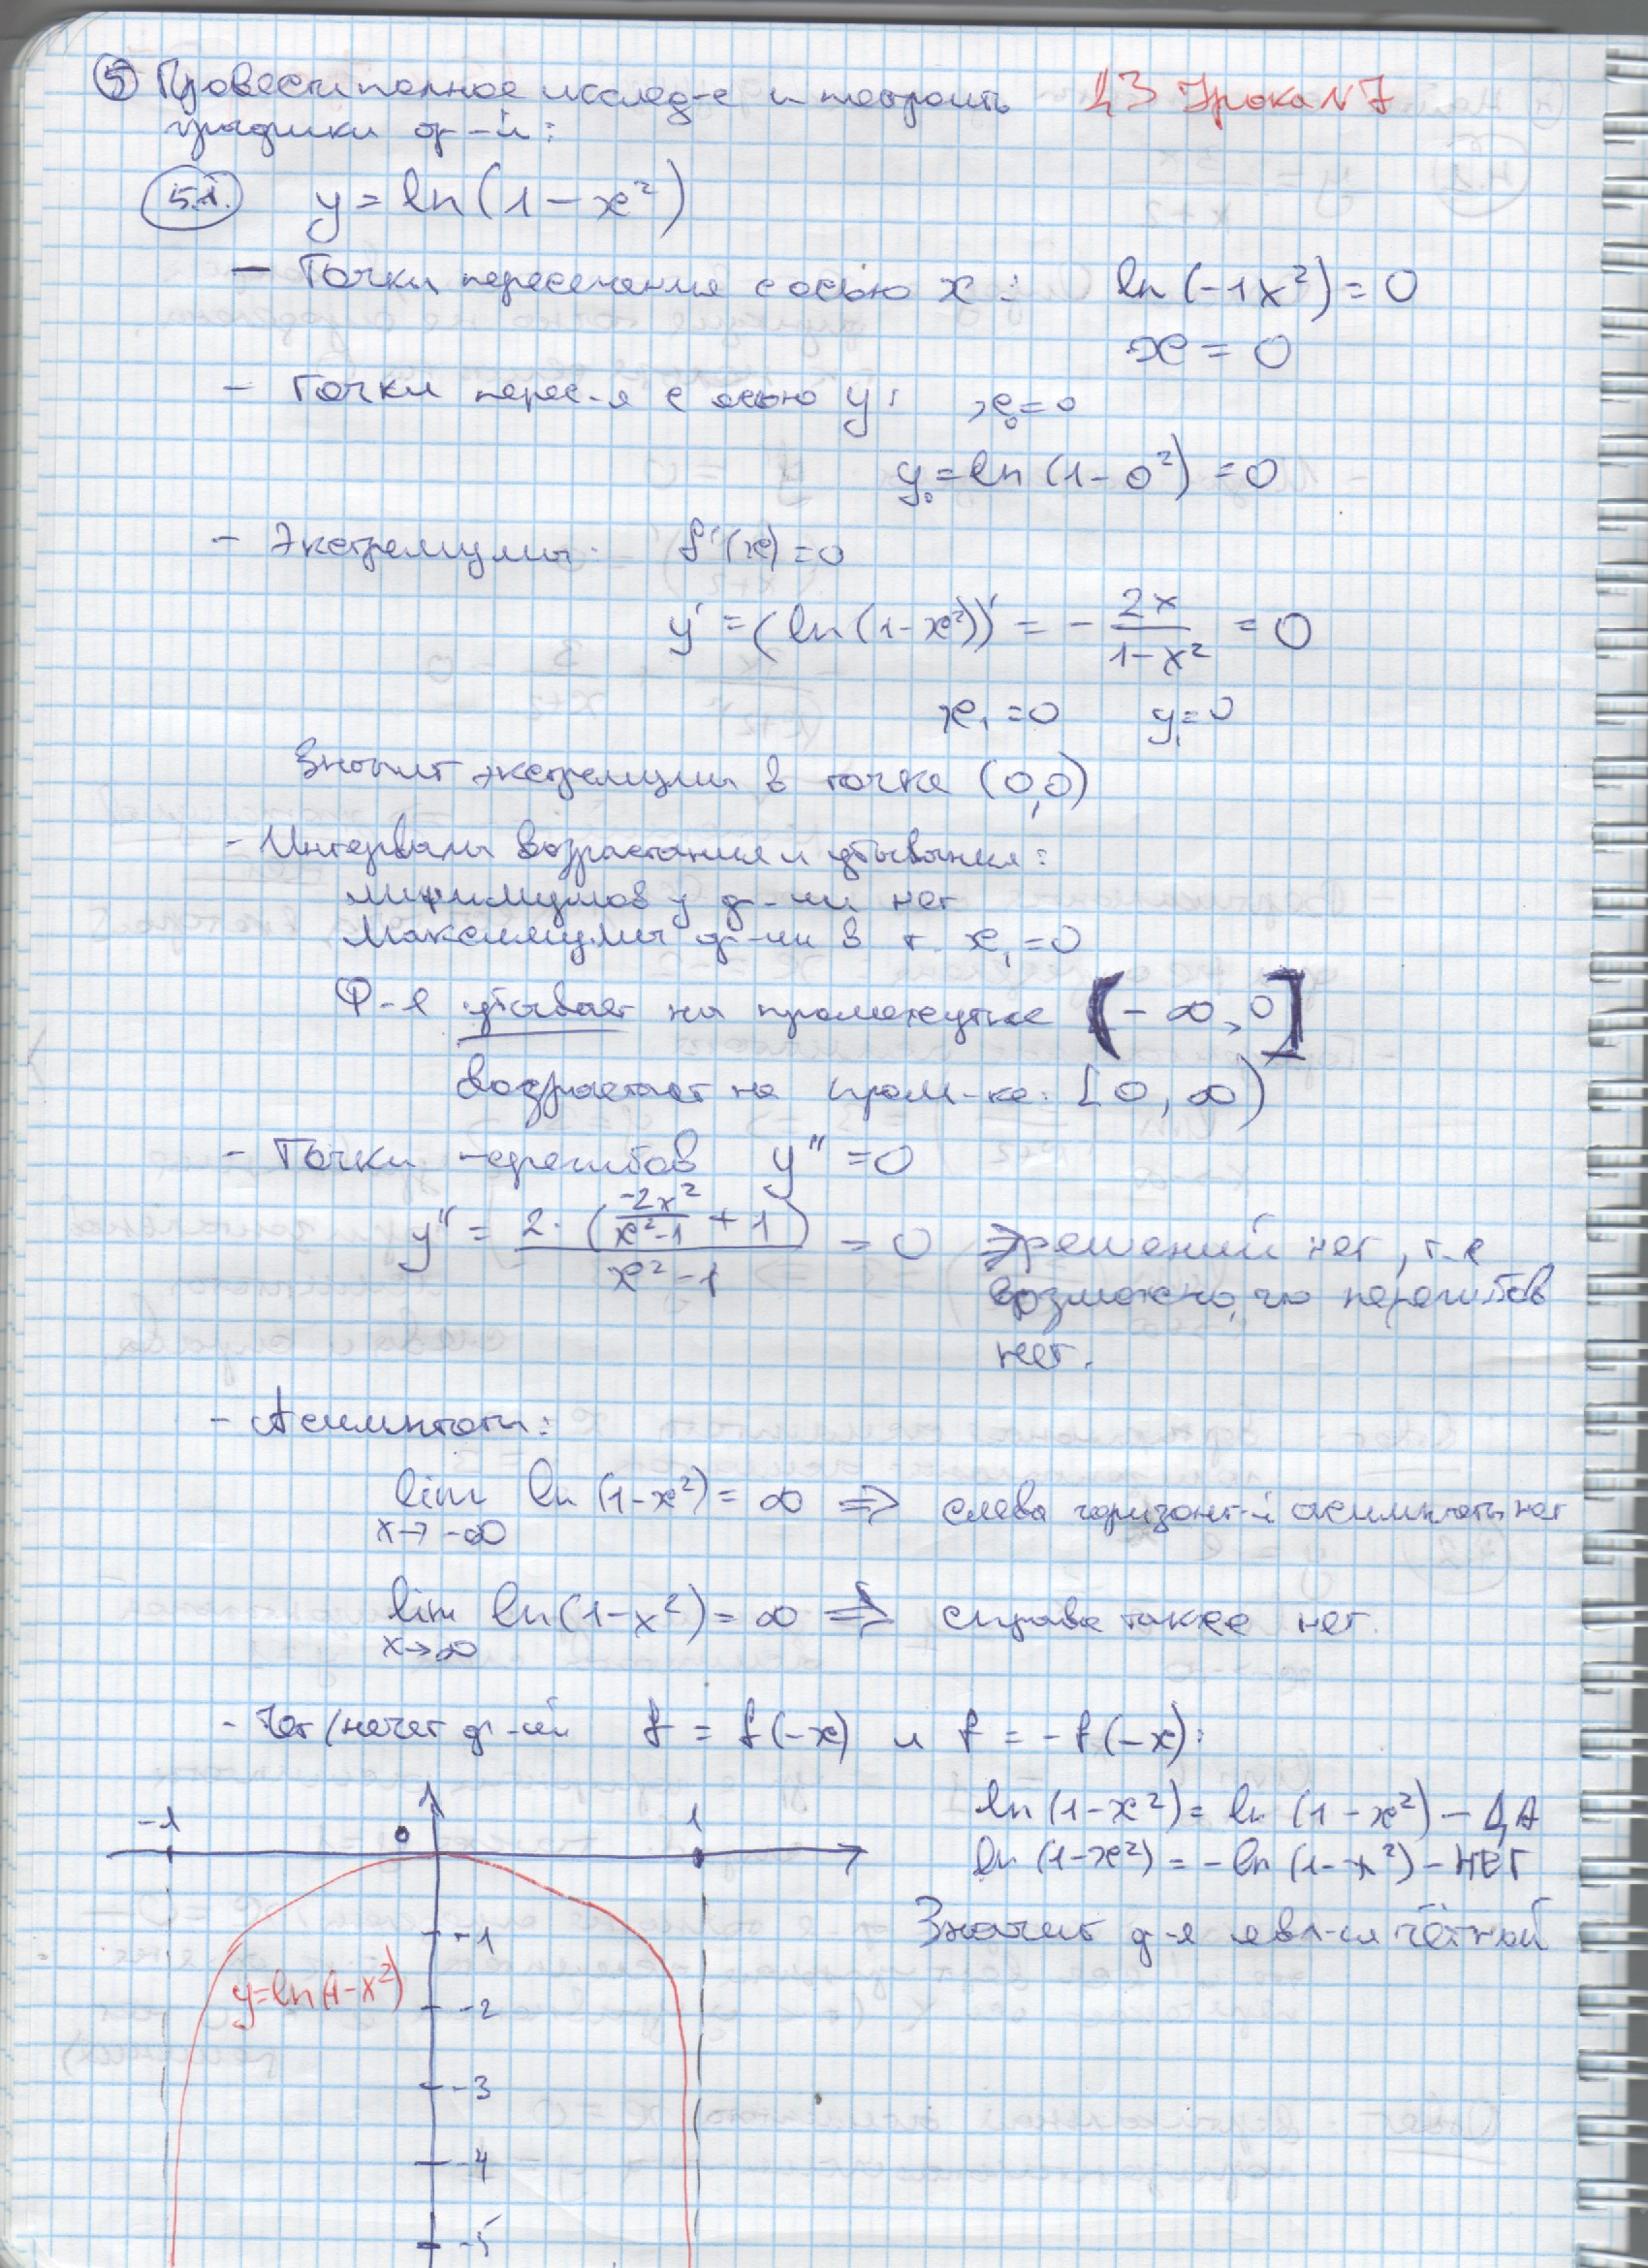 ⑤ Провести полное исслед-е и построить ДЗ Урока N 7
графики ф-й:
5.1. y = ln(1 - x²)
- Точки пересечения с осью x: ln(-1x²) = 0
x = 0
- Точки перес-я с осью y: x₀ = 0
y₀ = ln(1 - 0²) = 0
- Экстремумы: f'(x) = 0
y' = (ln(1-x²))' = - 2x/(1-x²) = 0
x₁ = 0 y₁ = 0
Значит экстремумы в точке (0,0)
- Интервалы возрастания и убывания:
минимумов у ф-ии нет
Максимумы ф-ии в т. x₁ = 0
Ф-я убывает на промежутке (-∞, 0]
возрастает на пром-ке: [0, ∞)
- Точки перегибов y'' = 0
y'' = 2·(-2x²/(x²-1) + 1)/(x²-1) = 0 ⇒ решений нет, т.е
возможно, что перегибов
нет.
- Асимптоты:
lim x→-∞ ln(1-x²) = ∞ ⇒ слева горизонт-й асимптоты нет
lim x→∞ ln(1-x²) = ∞ ⇒ справа также нет.
- Чет/нечет ф-ий f = f(-x) и f = -f(-x):
ln(1-x²) = ln(1-x²) - ДА
ln(1-x²) = -ln(1-x²) - НЕТ
Значит ф-я явл-ся чётной
-1 0 1
-1
y=ln(1-x²)
-2
-3
-4
-5